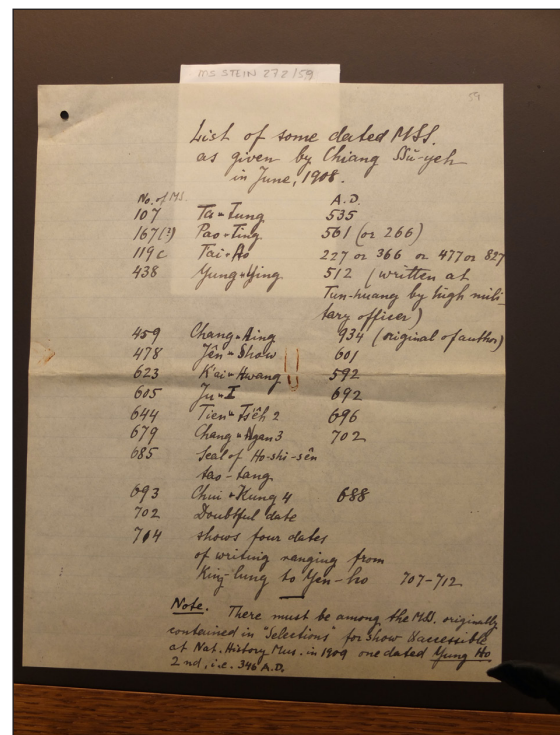 MS STEIN 272/59
59
List of some dated MSS.
as given by Chiang Ssŭ-yeh
in June, 1908.
No. of MS. A.D.
107 Ta-Tung 535
167(?) Pao-Ting 561 (or 266)
119c Tai-Ho 227 or 366 or 477 or 827
438 Yung-Ying 512 (written at
Tun-huang by high mili-
tary officer)
459 Chang-Hing 934 (original of author)
478 Jên-Show 601
623 K'ai-Hwang 592
605 Ju-I 692
644 Tien-Ts'êh 2 696
679 Chang-Ngan 3 702
685 Seal of Ho-shi-sên
tao-tang
693 Chui-Kung 4 688
702 Doubtful date
704 shows four dates
of writing ranging from
King-lung to Yen-ho 707-712
Note. There must be among the MSS. originally
contained in "Selections" for show & accessible
at Nat. History Mus. in 1909 one dated Yung Ho
2nd, i.e. 346 A.D.